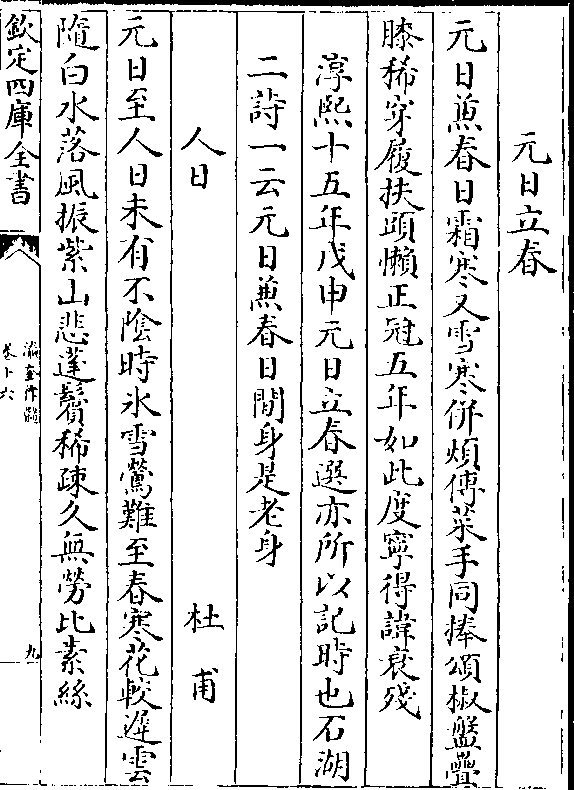 元日立春
元日𠔥春日霜寒又雪寒併煩傳菜手同捧頌椒盤疊
膝稀穿履扶頭懶正冠五年如此度寧得諱衰殘
淳熙十五年戊申元日立春選亦所以記時也石湖
二詩一云元日𠔥春日閒身是老身
人日 杜甫
元日至人日未有不陰時氷雪鶯難至春寒花較遲雲
隨白水落風振紫山悲蓬鬢稀疎久無勞比素絲
欽定四庫全書
瀛奎律髓
卷十六
九